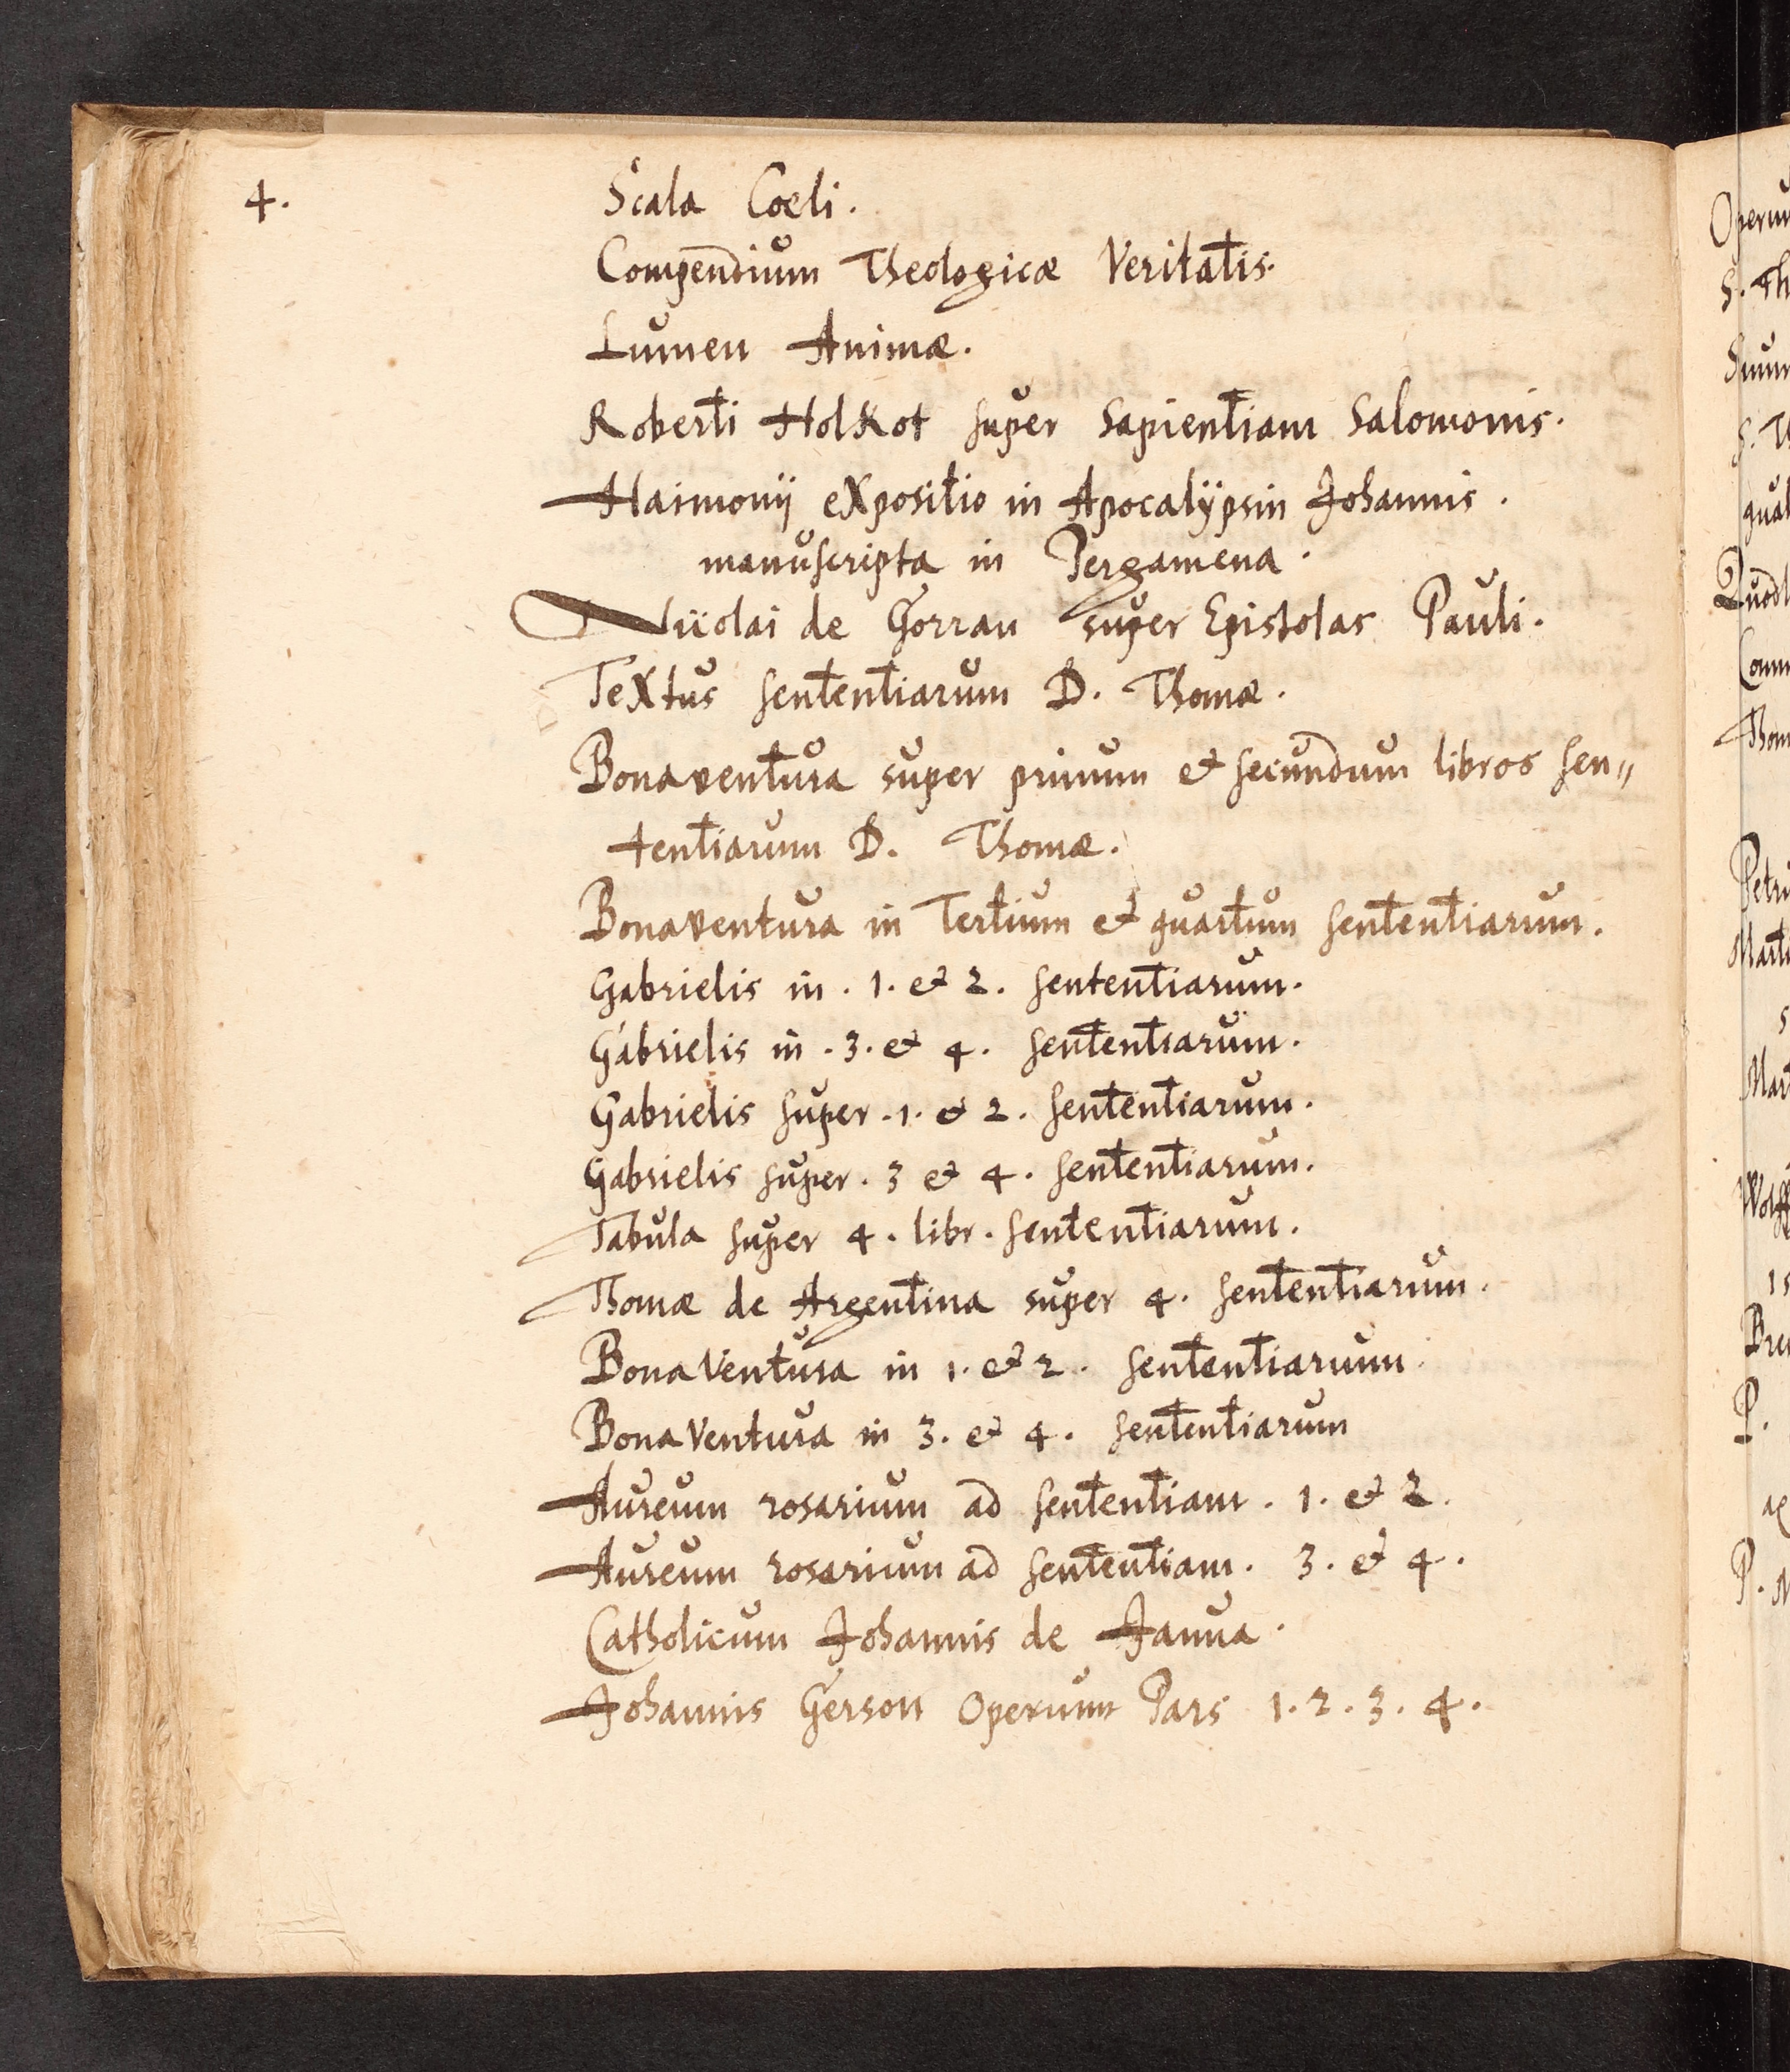 4.
Scala Coeli.
Compendium Theologicæ Veritatis.
Lumen Animæ.
Roberti Holkot super Sapientiam Salomonis.
Haimonij expositio in Apocalÿpsin Johannis.
manuscripta in Pergamena.
Nicolai de Gorran super Epistolas Pauli.
Textus sententiarum D. Thomæ.
Bonaventura super primum et secundum libros sen„
tentiarum D. Thomæ.
Bonaventura in Tertium et quartum sententiarum.
Gabrielis in . 1. et 2. sententiarum.
Gabrielis in . 3. et 4. sententiarum.
Gabrielis super . 1. et 2. sententiarum.
Gabrielis super . 3 et 4. sententiarum.
Tabula super 4. libr. sententiarum.
Thomæ de Argentina super 4. sententiarum.
Bonaventura in 1. et 2. sententiarum.
Bonaventura in 3. et 4. sententiarum
Aureum rosarium ad sententiam. 1. et 2.
Aureum rosarium ad sententiam. 3. et 4.
Catholicum Johannis de Janua.
Johannis Gerson Operum Pars 1. 2. 3. 4.